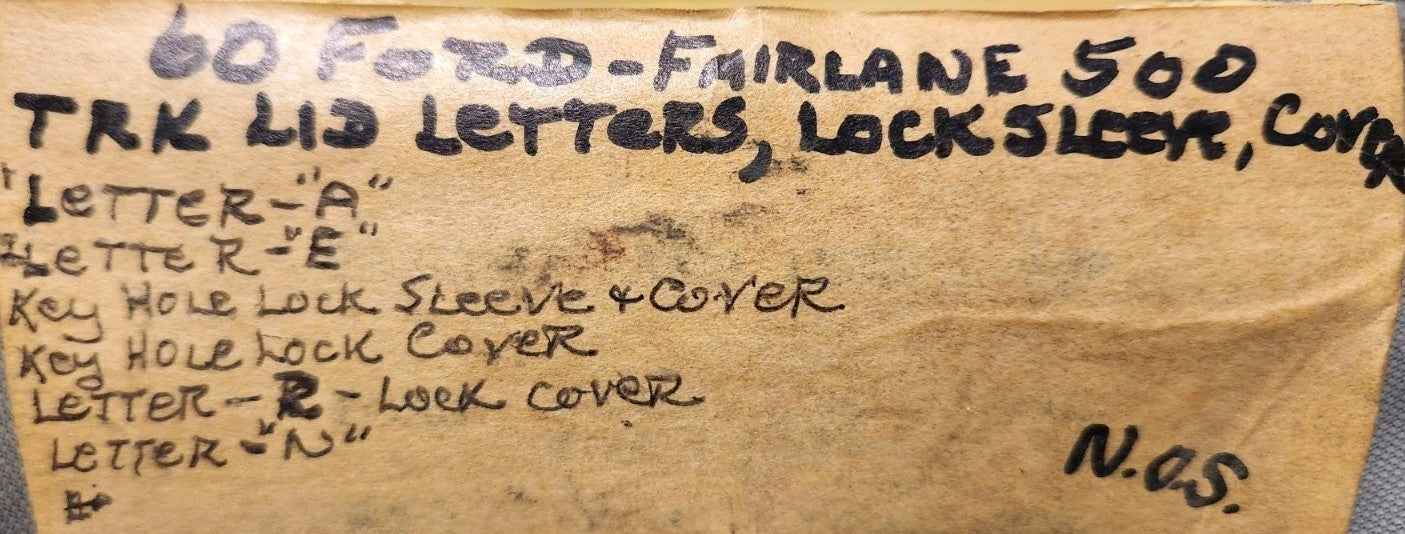 60 FORD-FAIRLANE 500
TRK LID LETTERS, LOCK SLEEVE, COVER
LETTER-"A"
LETTER-"E"
KEY HOLE LOCK SLEEVE & COVER
KEY HOLE LOCK COVER
LETTER-R-LOCK COVER
LETTER-"N"
N.O.S.